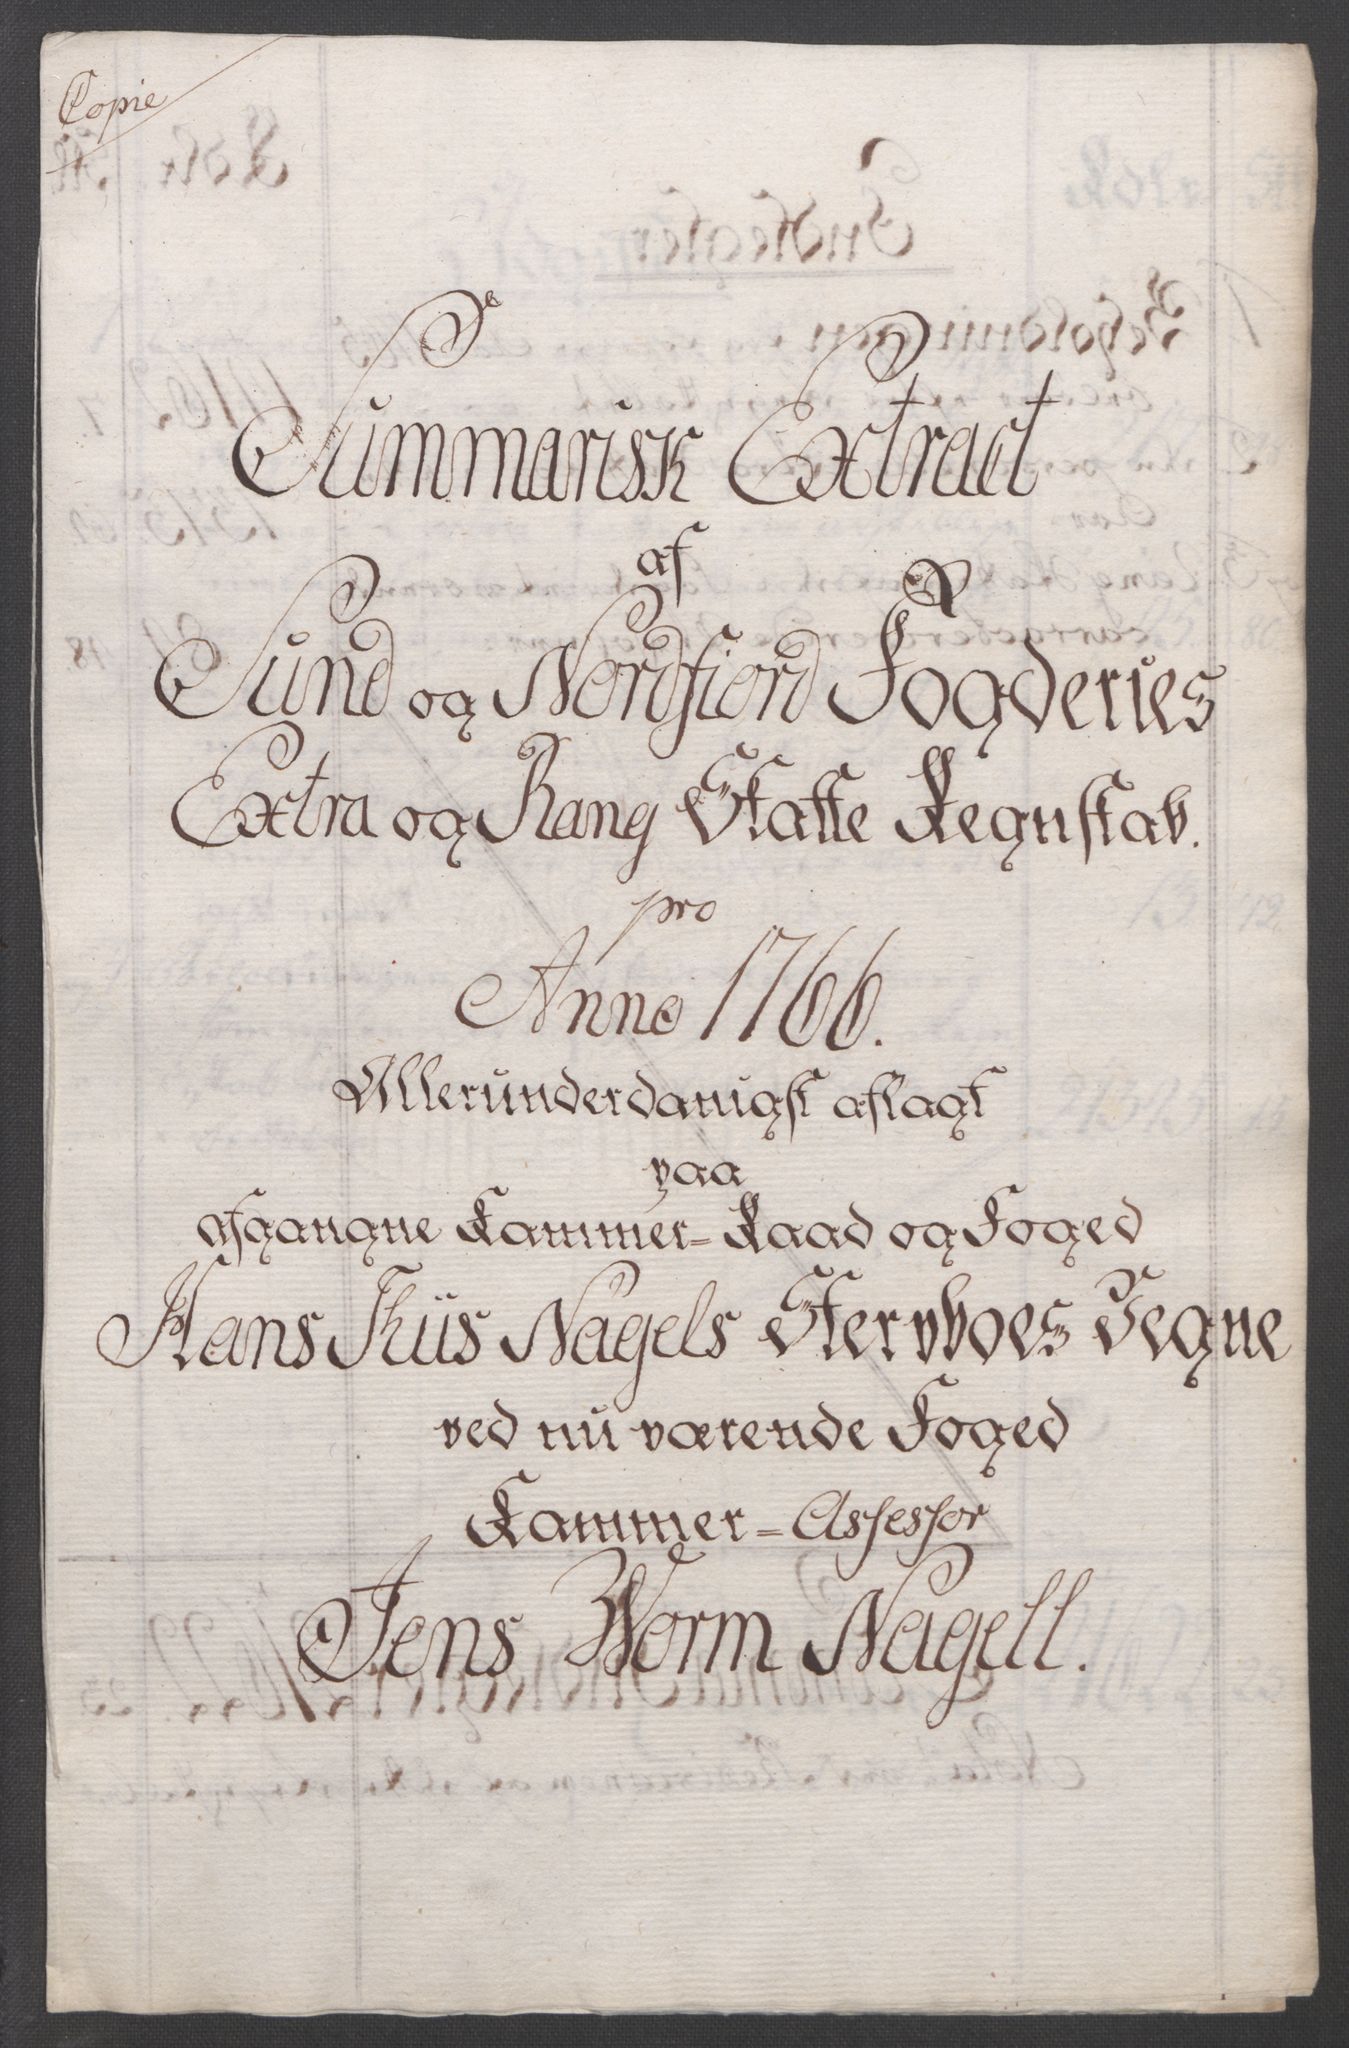 Copie
Summarisk Extract
af
Sund og Nordfiord Fogderies
Extra og Rang Skatte Regnskab.
pro
Anno 1766.
Allerunderdanigst aflagt
paa
afgangne Kammer-Raad og Foged
Hans Thiis Nagels Stervboes Vegne
ved nu værende Foged
Kammer-Assessor
Jens Worm Nagell.